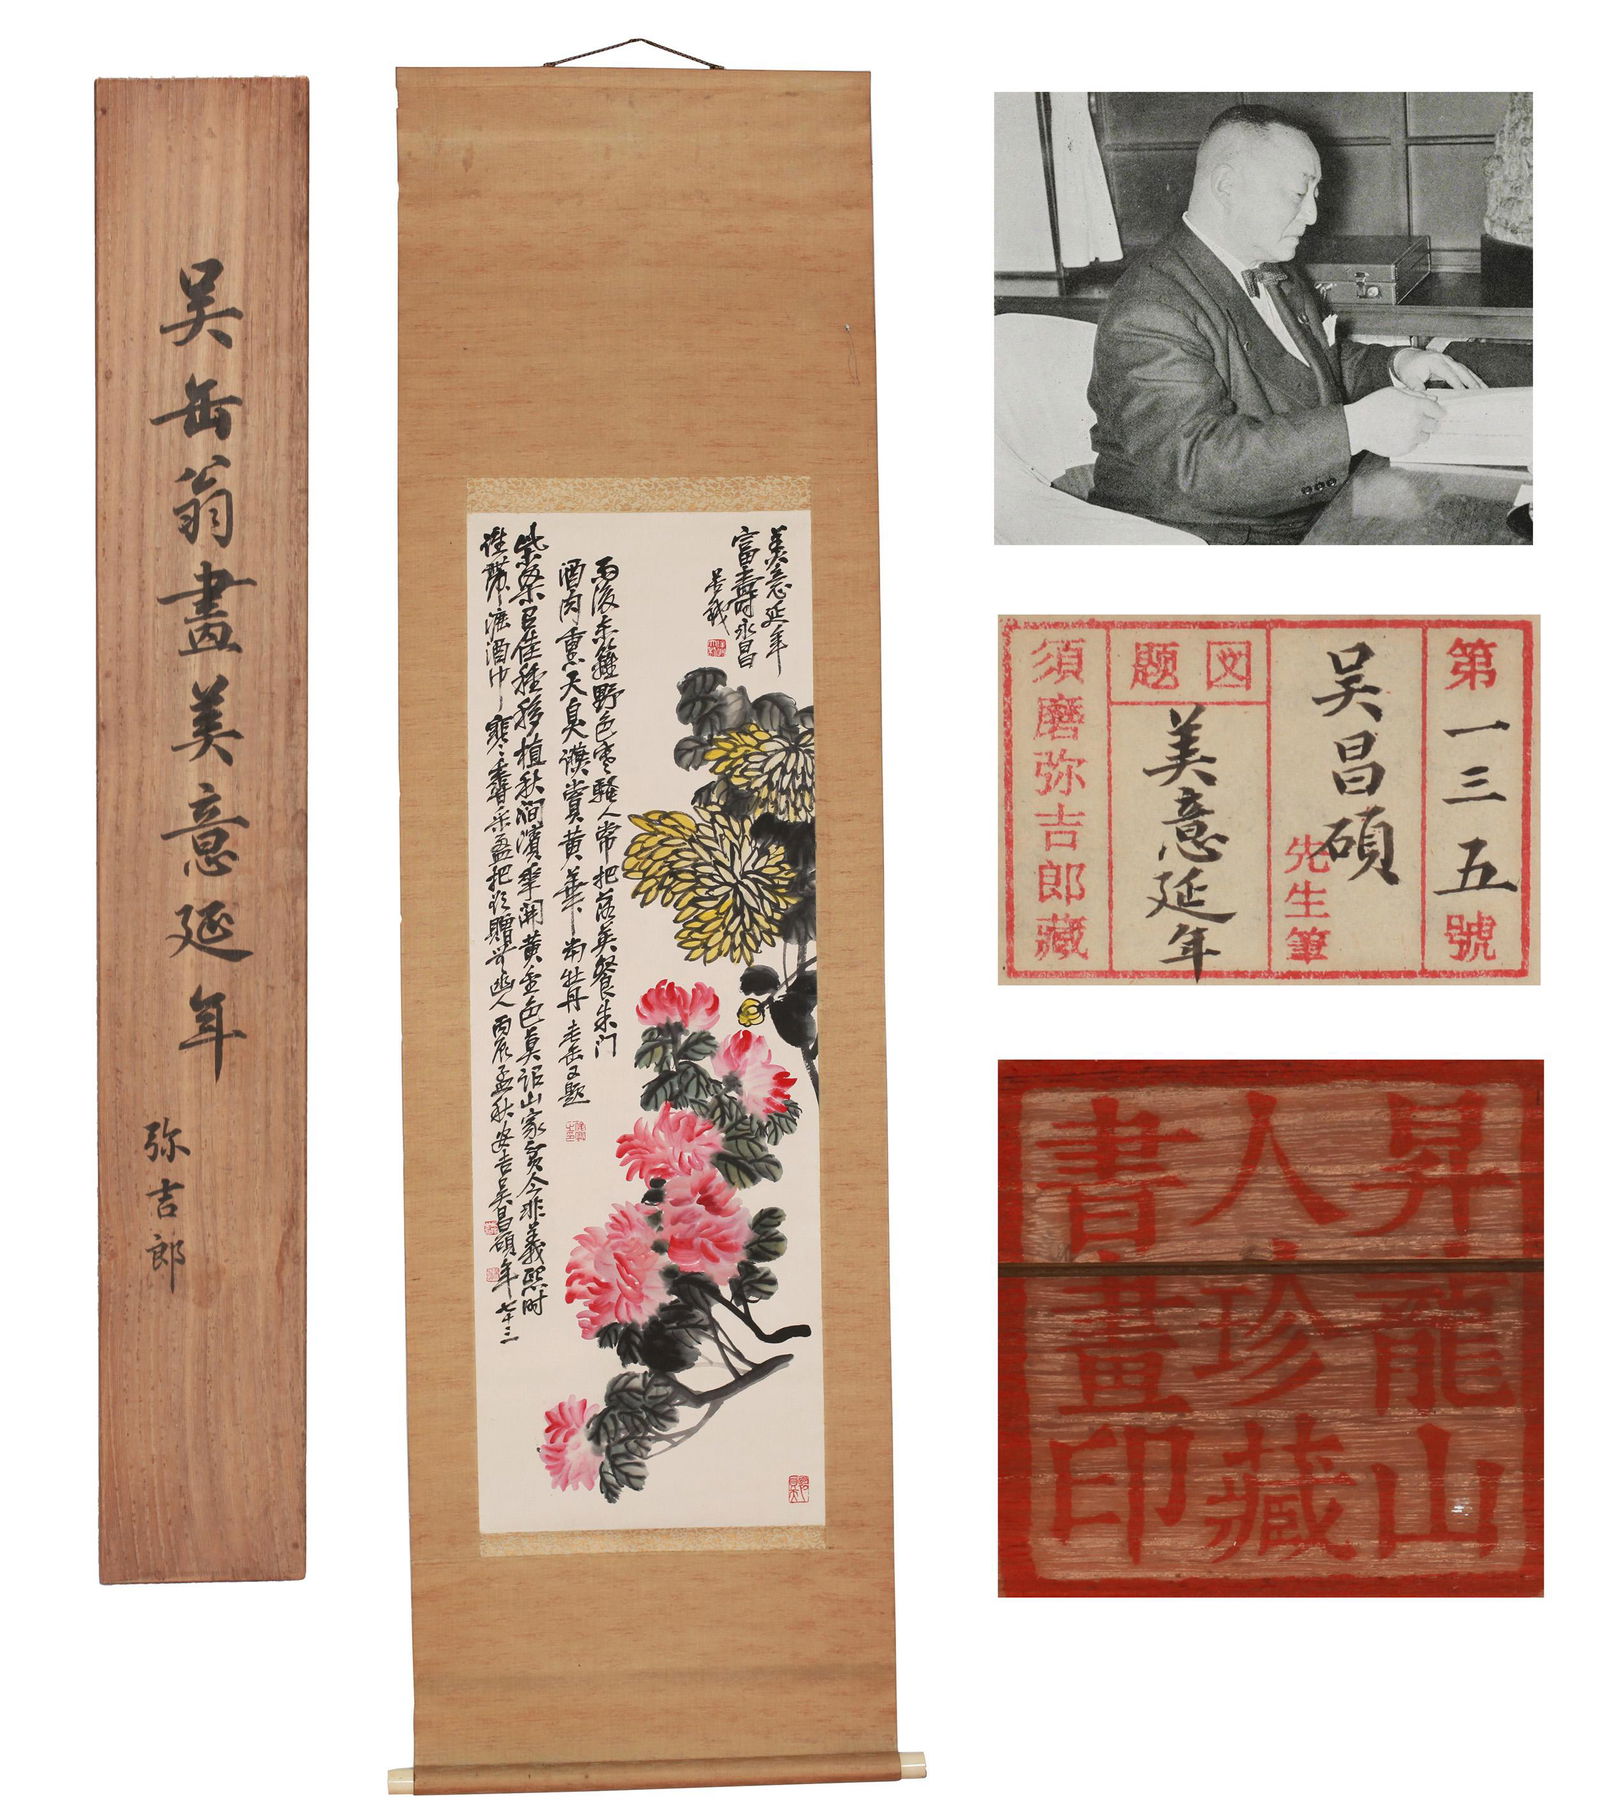 吴缶翁畫美意延年
弥吉郎
美意延年
富壽永昌
雨後東籬野色寒騷人常把落英餐朱门
酒肉重天臭談賞黄華當牡丹 老缶又题
柴桑巨佳種移植秋澗濱華開黄金色真詔山家貧今非義熙时
漉酒巾
采盈把
贈幽人 丙辰孟秋安吉吴昌碩年七十三
第一三五號
吴昌碩先生筆
図题
美意延年
須磨弥吉郎藏
昇龍山
人珍藏
書畫印